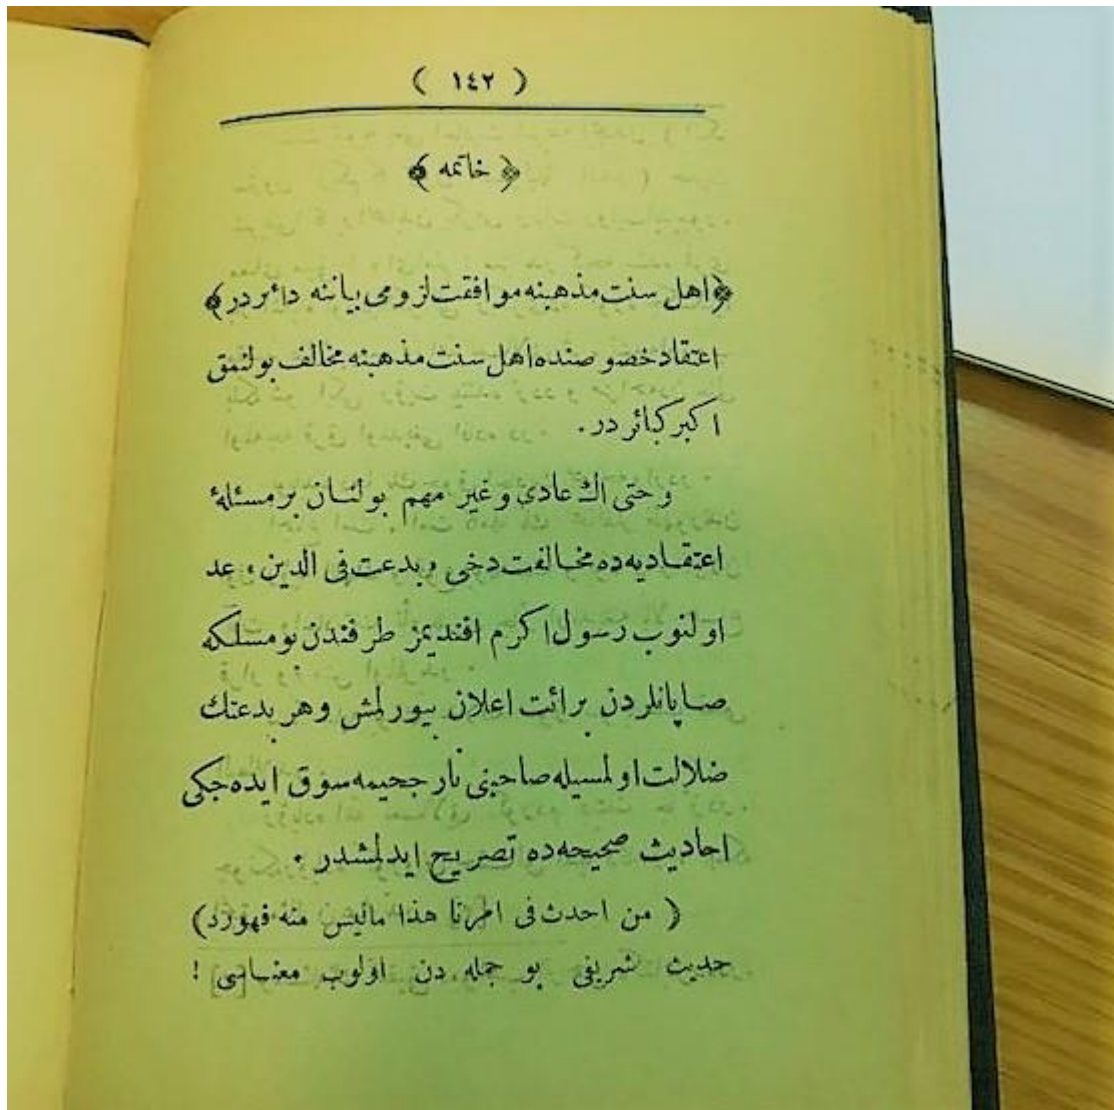 ( ١٤٢ )
﴿ خاتمه ﴾
﴿اهل سنت مذهبنه موافقت لزومی بیاننه دائردر﴾
اعتقاد خصوصنده اهل سنت مذهبنه مخالف بولنمق
اکبر کبائردر .
و حتی اڭ عادی و غیر مهم بولنان بر مسئلهٔ
اعتقادیه ده مخالفت دخی «بدعت فی الدین» عد
اولنوب رسول اکرم افندیمز طرفندن بو مسلکه
صاپانلردن برائت اعلان بیورلمش و هر بدعتك
ضلالت اولمسیله صاحبنی نار جحیمه سوق ایده جکی
احادیث صحیحه ده تصریح ایدلمشدر .
( من احدث فی امرنا هذا مالیس منه فهورد )
حدیث شریفی بو جمله دن اولوب معناسی !